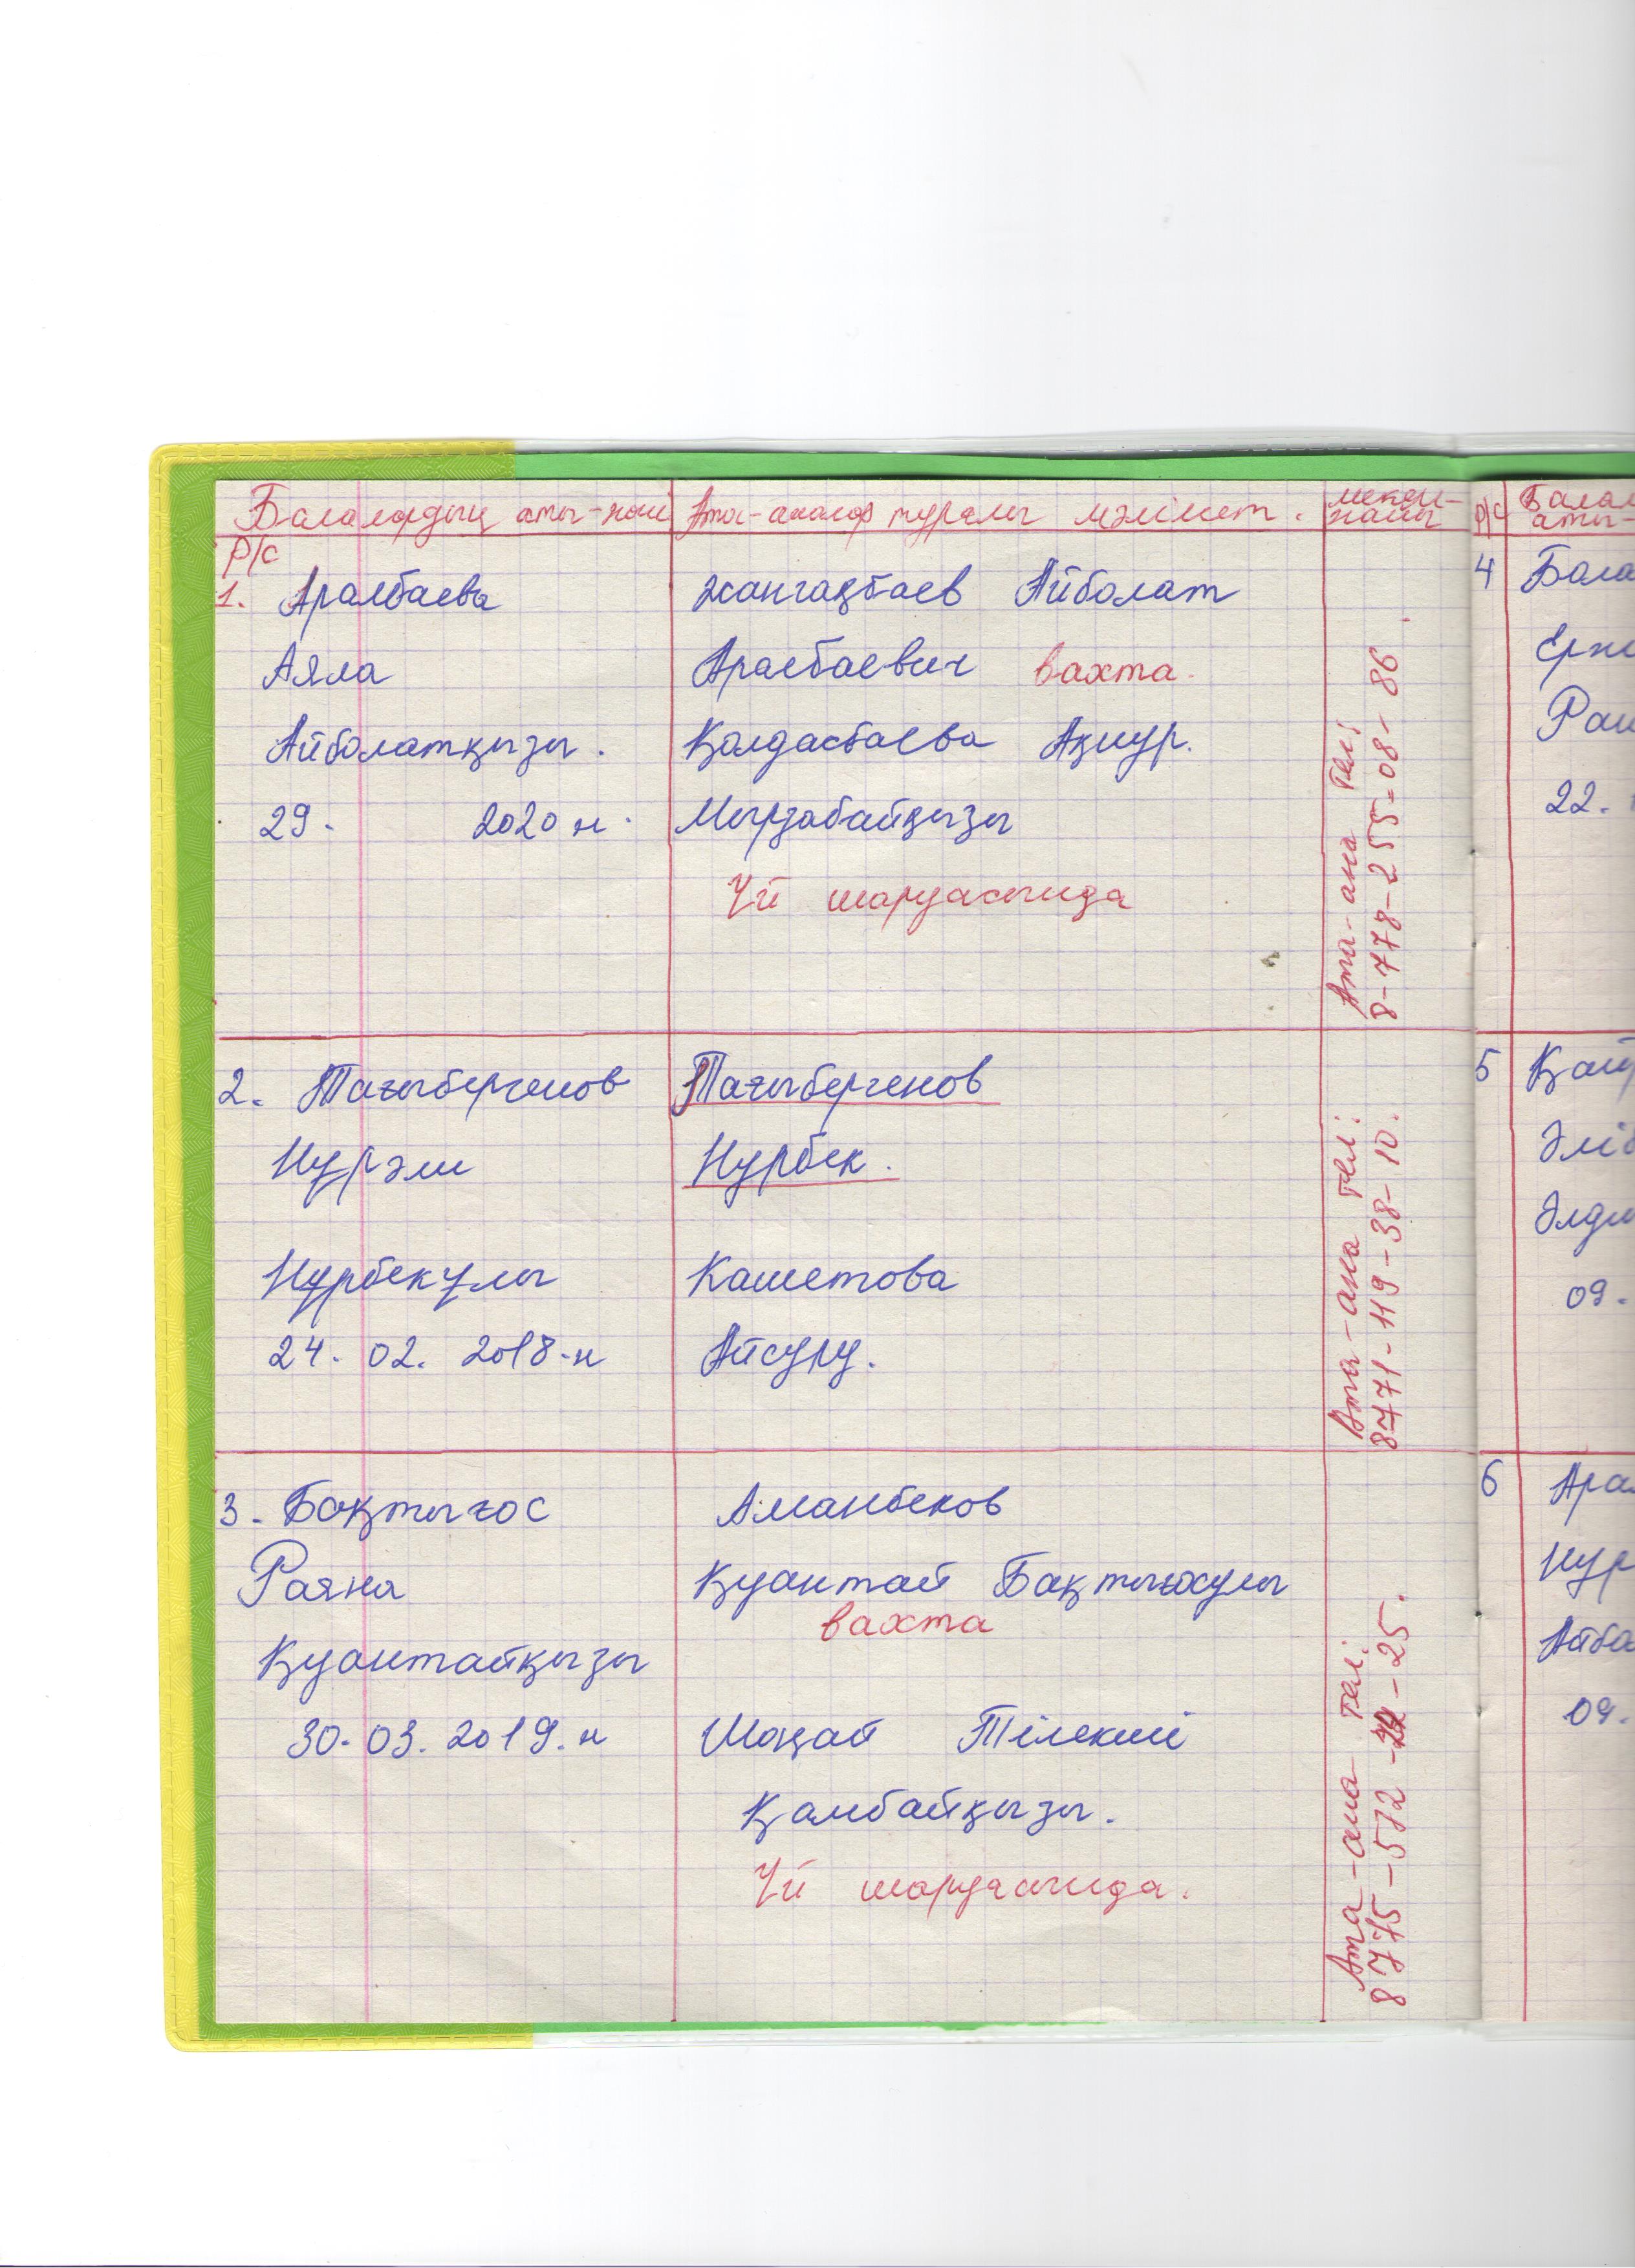 Балалардың аты-жөні
Ата-аналар туралы мәлімет.
мекен-
жайы
р/с
1. Аралбаева
Аяла
Айболатқызы.
29. 2020 ж.
Жанғақбаев Айболат
Аралбаевич вахта.
Қалдасбаева Ақнұр.
Мырзабайқызы
Үй шаруасында
Ата-ана тел:
8-778-255-08-86.
2. Тағыбергенов
Нұрәли
Нұрбекұлы
24. 02. 2018-ж
Тағыбергенов
Нұрбек.
Кашетова
Айсұлу.
Ата-ана тел:
8771-119-38-10.
3. Бақтығос
Раяна
Қуантайқызы
30. 03. 2019. ж
Аманбеков
Қуантай Бақтығосұлы
вахта
Шоқай Тілекші
Қамбайқызы.
Үй шаруасында.
Ата-ана тел:
8775-572-22-25.
р/с
Балал
аты-
4 Бала
Ерк
Раи
22.
5 Қай
Әлі
Әлди
09.
6 Арал
Нұр
Айба
09.